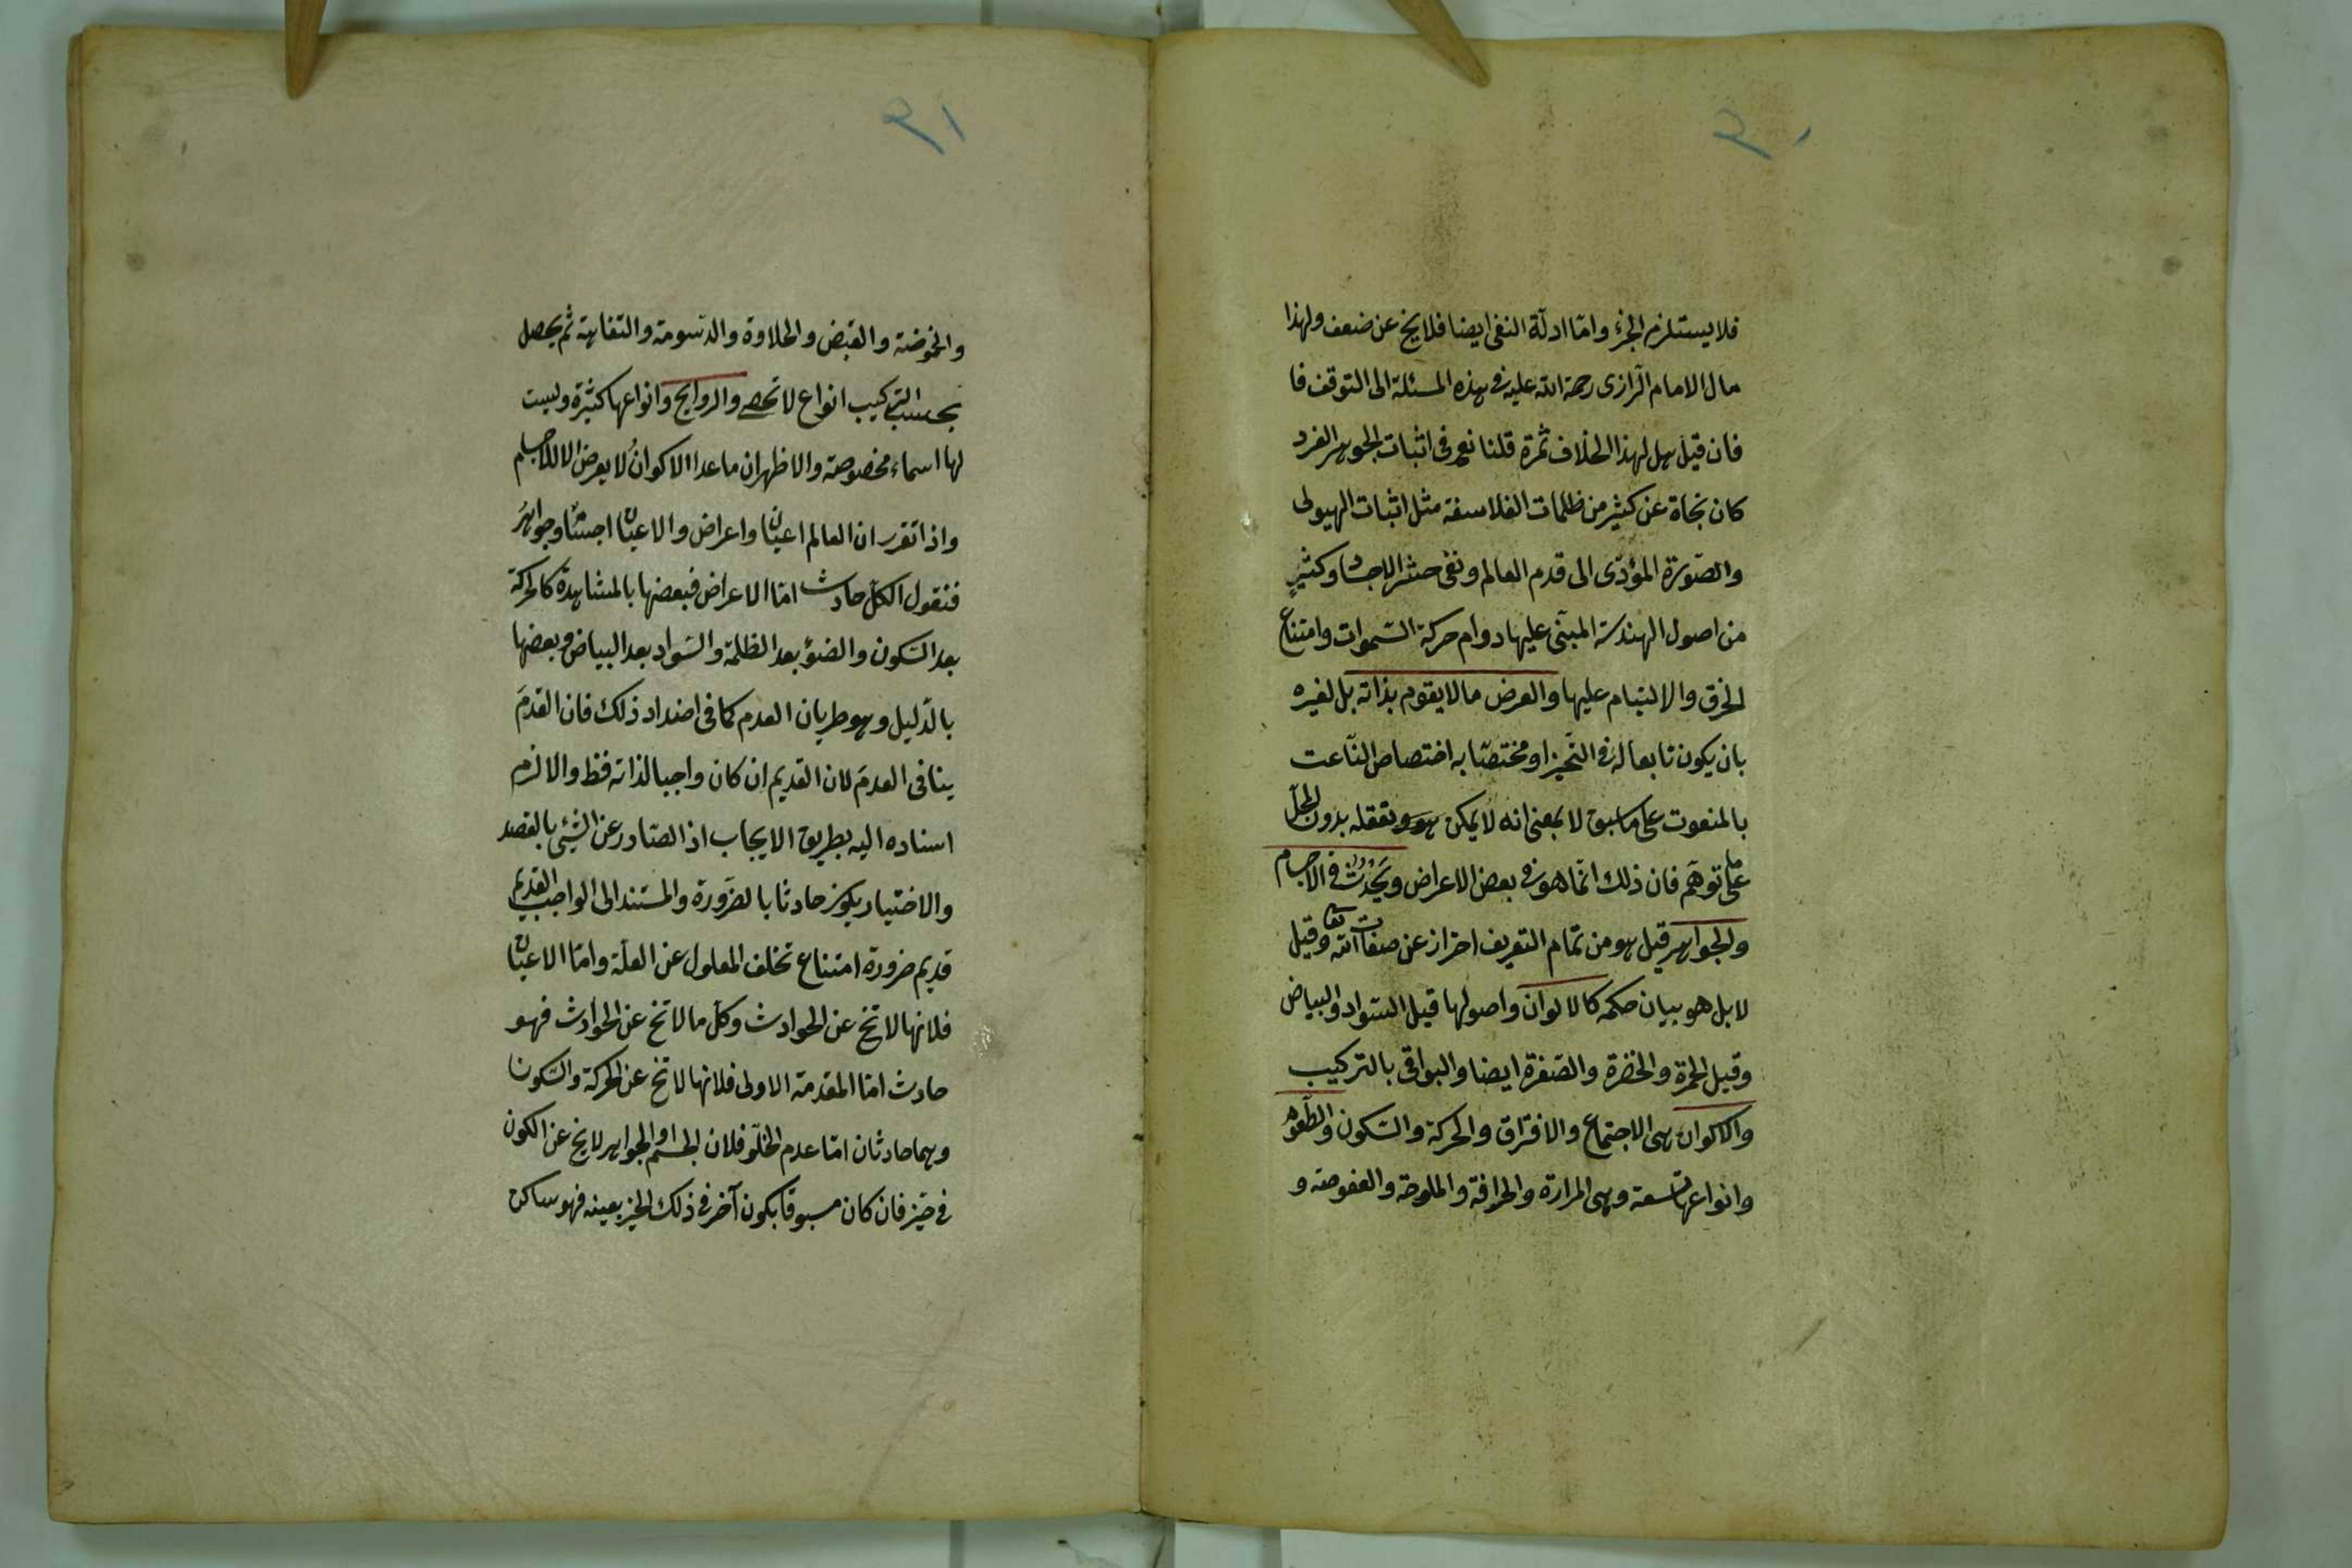 ٣٠
فلا يستلزم الجزء وامّا ادلّة النفى ايضا فلا يخ عن ضعف ولهذا
مال الامام الرّازى رحمة الله عليه فى هذه المسئلة الى التوقف فا
فان قيل هل لهذا الخلاف ثمرة قلنا نعم فى اثبات الجوهر الفرد
كان نجاة عن كثير من ظلمات الفلاسفة مثل اثبات الهيولى
والصّورة المؤدّى الى قدم العالم ونفى حشر الاجساد وكثيرٍ
من اصول الهندسة المبنّى عليها دوام حركة السّموات وامتناع
الخرق والالتيام عليها والعرض ما لا يقوم بذاته بل لغيره
بان يكون تابعا له فى التّحيز او مختصّا به اختصاص النّاعت
بالمنعوت على ما سبق لا بمعنى انه لا يمكن تعقله بدون المحلّ
على ما توهّم فان ذلك انّما هو فى بعض الاعراض ويَحْدُثُ فى الاجسام
والجواهر قيل هو من تمام التعريف احتراز عن صفات الله تعا وقيل
لا بل هو بيان حكمه كالالوان واصولها قيل السّواد والبياض
وقيل الحمرة والخضرة والصّفرة ايضا والبواقى بالتركيب
والاكوان هى الاجتماع والافتراق والحركة والسّكون والطّعوم
وانواعها تسعة وهى المرارة والحرافة والملوحة والعفوصة و
٣١
والحموضة والقبض والحلاوة والدّسومة والتفاهة ثم يحصل
بحسب التركيب انواع لا تحصى والروايح وانواعها كثيرة وليست
لها اسماء مخصوصة والاظهر ان ما عدا الاكوان لا يعرض الا للاجسام
واذا تقرر ان العالم اعيان واعراض والاعيان اجسام وجواهر
فنقول الكلّ حادث امّا الاعراض فبعضها بالمشاهدة كالحركة
بعد السّكون والضوء بعد الظلمة والسّواد بعد البياض وبعضها
بالدّليل وهو طريان العدم كما فى اضداد ذلك فان القدمَ
ينافى العدمَ لان القديم ان كان واجبا لذاته فظ والا لزم
اسناده اليه بطريق الايجاب اذ الصّادر عن الشّيئ بالقصد
والاختيار يكون حادثا بالضّرورة والمستند الى الواجب القديم
قديم ضرورة امتناع تخلف المعلول عن العلّة وامّا الاعيان
فلانها لا تخ عن الحوادث وكلّ ما لا تخ عن الحوادث فهو
حادث امّا المقدمة الاولى فلانها لا تخ عن الحركة والسّكون
وهما حادثان امّا عدم الخلّو فلان الجسم او الجواهر لا يخ عن الكون
فى حيّز فان كان مسبوقا بكون آخر فى ذلك الحيّز بعينه فهو ساكن